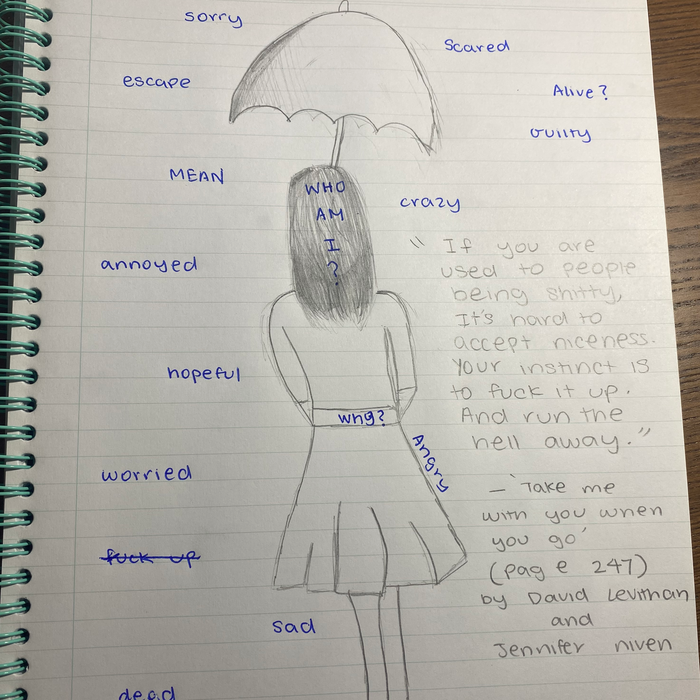 sorry
scared
escape
Alive?
Guilty
MEAN
WHO
AM
I
?
crazy
annoyed
" If you are
used to people
being shitty,
It's hard to
accept niceness.
Your instinct is
to fuck it up.
And run the
hell away."
hopeful
why?
Angry
worried
— 'Take me
with you when
you go'
(page 247)
by David Levithan
and
Jennifer niven
fuck up
sad
dead